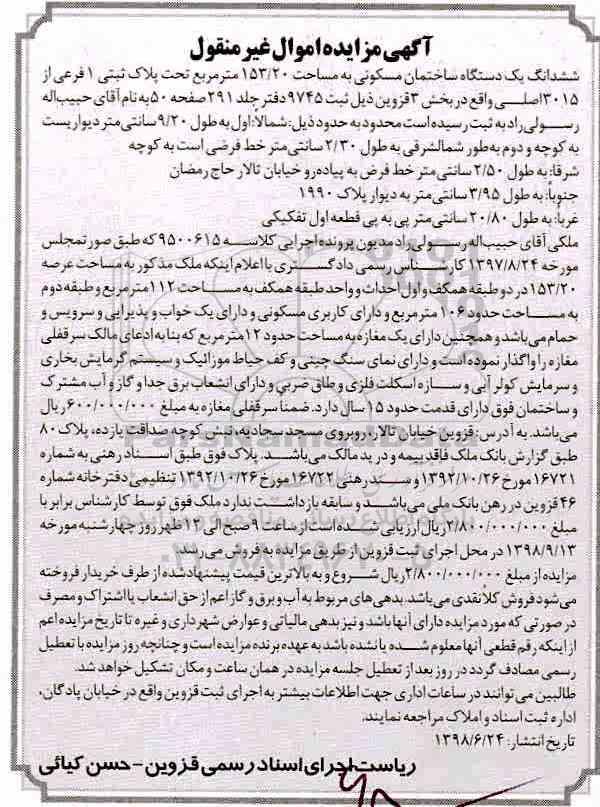 آگهی مزایده اموال غیر منقول
ششدانگ یک دستگاه ساختمان مسکونی به مساحت ۱۵۳/۲۰ مترمربع تحت پلاک ثبتی ۱ فرعی از
۳۰۱۵اصلی واقع در بخش ۳قزوین ذیل ثبت ۹۷۴۵دفتر جلد ۲۹۱صفحه ۵۰به نام آقای حبیب‌اله
رسولی‌راد به ثبت رسیده است محدود به حدود ذیل: شمالاً: اول به طول ۹/۲۰ سانتی‌متر دیواریست
به کوچه و دوم به‌طور شمالشرقی به طول ۲/۳۰ سانتی‌متر خط فرضی است به کوچه
شرقا: به طول ۲/۵۰ سانتی‌متر خط فرض به پیاده‌رو خیابان تالار حاج رمضان
جنوباً: به طول ۳/۹۵ سانتی‌متر به دیوار پلاک ۱۹۹۰
غربا: به طول ۲۰/۸۰ سانتی‌متر پی به پی قطعه اول تفکیکی
ملکی آقای حبیب‌اله رسولی راد مدیون پرونده اجرایی کلاسه ۹۵۰۰۶۱۵ که طبق صورتمجلس
مورخه ۱۳۹۷/۸/۲۴ کارشناس رسمی دادگستری با اعلام اینکه ملک مذکور به مساحت عرصه
۱۵۳/۲۰ در دو طبقه همکف و اول احداث و واحد طبقه همکف به مساحت ۱۱۲مترمربع و طبقه دوم
به مساحت حدود ۱۰۶ مترمربع و دارای کاربری مسکونی و دارای یک خواب و پذیرایی و سرویس و
حمام می‌باشد و همچنین دارای یک مغازه به مساحت حدود ۱۲مترمربع که بنا به ادعای مالک سرقفلی
مغازه را واگذار نموده است و دارای نمای سنگ چینی و کف حیاط موزائیک و سیستم گرمایش بخاری
و سرمایش کولر آبی و سازه اسکلت فلزی و طاق ضربی و دارای انشعاب برق جدا و گاز و آب مشترک
و ساختمان فوق دارای قدمت حدود ۱۵ سال دارد. ضمناً سرقفلی مغازه به مبلغ ۶۰۰/۰۰۰/۰۰۰ ریال
می‌باشد. به آدرس: قزوین خیابان تالار، روبروی مسجد سجادیه، نبش کوچه صداقت یازده، پلاک ۸۰
طبق گزارش بانک ملک فاقد بیمه و در ید مالک می‌باشد. پلاک فوق طبق اسناد رهنی به شماره
۱۶۷۲۱مورخ ۱۳۹۲/۱۰/۲۶ و سند رهنی ۱۶۷۲۲مورخ ۱۳۹۲/۱۰/۲۶ تنظیمی دفترخانه شماره
۴۶قزوین در رهن بانک ملی می‌باشد و سابقه بازداشت ندارد ملک فوق توسط کارشناس برابر با
مبلغ ۲/۸۰۰/۰۰۰/۰۰۰ریال ارزیابی شده است از ساعت ۹ صبح الی ۱۲ ظهر روز چهارشنبه مورخه
۱۳۹۸/۹/۱۳ در محل اجرای ثبت قزوین از طریق مزایده به فروش می‌رسند.
مزایده از مبلغ ۲/۸۰۰/۰۰۰/۰۰۰ریال شروع و به بالاترین قیمت پیشنهاد شده از طرف خریدار فروخته
می‌شود فروش کلا نقدی می‌باشد. بدهی‌های مربوط به آب و برق و گاز اعم از حق انشعاب یا اشتراک و مصرف
در صورتی که مورد مزایده دارای آنها باشد و نیز بدهی مالیاتی و عوارض شهرداری و غیره تا تاریخ مزایده اعم
از اینکه رقم قطعی آنها معلوم شده یا نشده باشد به عهده برنده مزایده است و چنانچه روز مزایده با تعطیل
رسمی مصادف گردد در روز بعد از تعطیل جلسه مزایده در همان ساعت و مکان تشکیل خواهد شد.
طالبین می توانند در ساعات اداری جهت اطلاعات بیشتر به اجرای ثبت قزوین واقع در خیابان پادگان،
اداره ثبت اسناد و املاک مراجعه نمایند.
تاریخ انتشار: ۱۳۹۸/۶/۲۴
ریاست اجرای اسناد رسمی قزوین - حسن کیائی